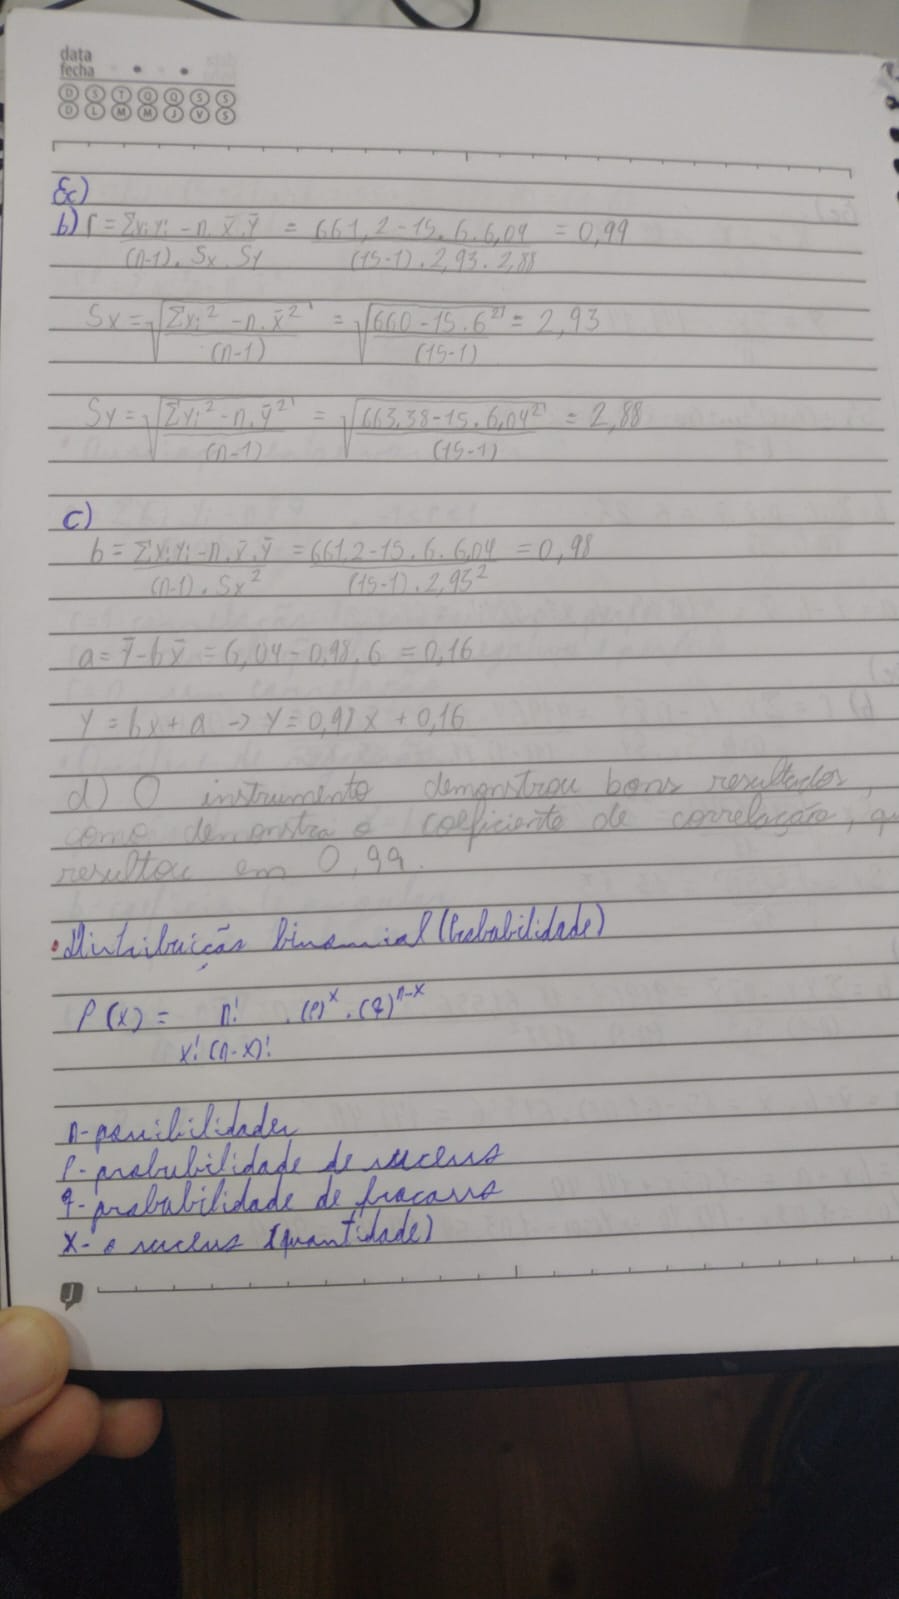 data
fecha
D S T Q Q S S
D L M M J V S
Ex)
b) r = Σxiyi - n. x̄. ȳ = 661,2 - 15. 6. 6,04 = 0,99
(n-1). Sx. Sy (15-1). 2,93. 2,88
Sx = √Σxi² - n. x̄² = √660 - 15. 6² = 2,93
(n-1) (15-1)
Sy = √Σyi² - n. ȳ² = √663,38 - 15. 6,04² = 2,88
(n-1) (15-1)
c)
b = Σxiyi - n. x̄. ȳ = 661,2 - 15. 6. 6,04 = 0,98
(n-1). Sx² (15-1). 2,93²
a = ȳ - bx̄ = 6,04 - 0,98. 6 = 0,16
y = bx + a → y = 0,97x + 0,16
d) O instrumento demonstrou bons resultados,
como demonstra o coeficiente de correlação,
resultou em 0,99.
• Distribuição binomial (Probabilidade)
P(x) = n! . (p)ˣ . (q)ⁿ⁻ˣ
x! (n-x)!
n- possibilidades
p- probabilidade de sucesso
q- probabilidade de fracasso
x- o sucesso (quantidade)
J